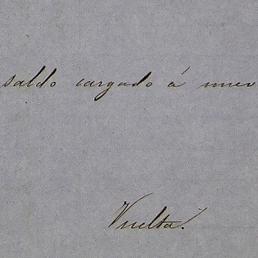 saldo cargado á nuev
Vuelta.